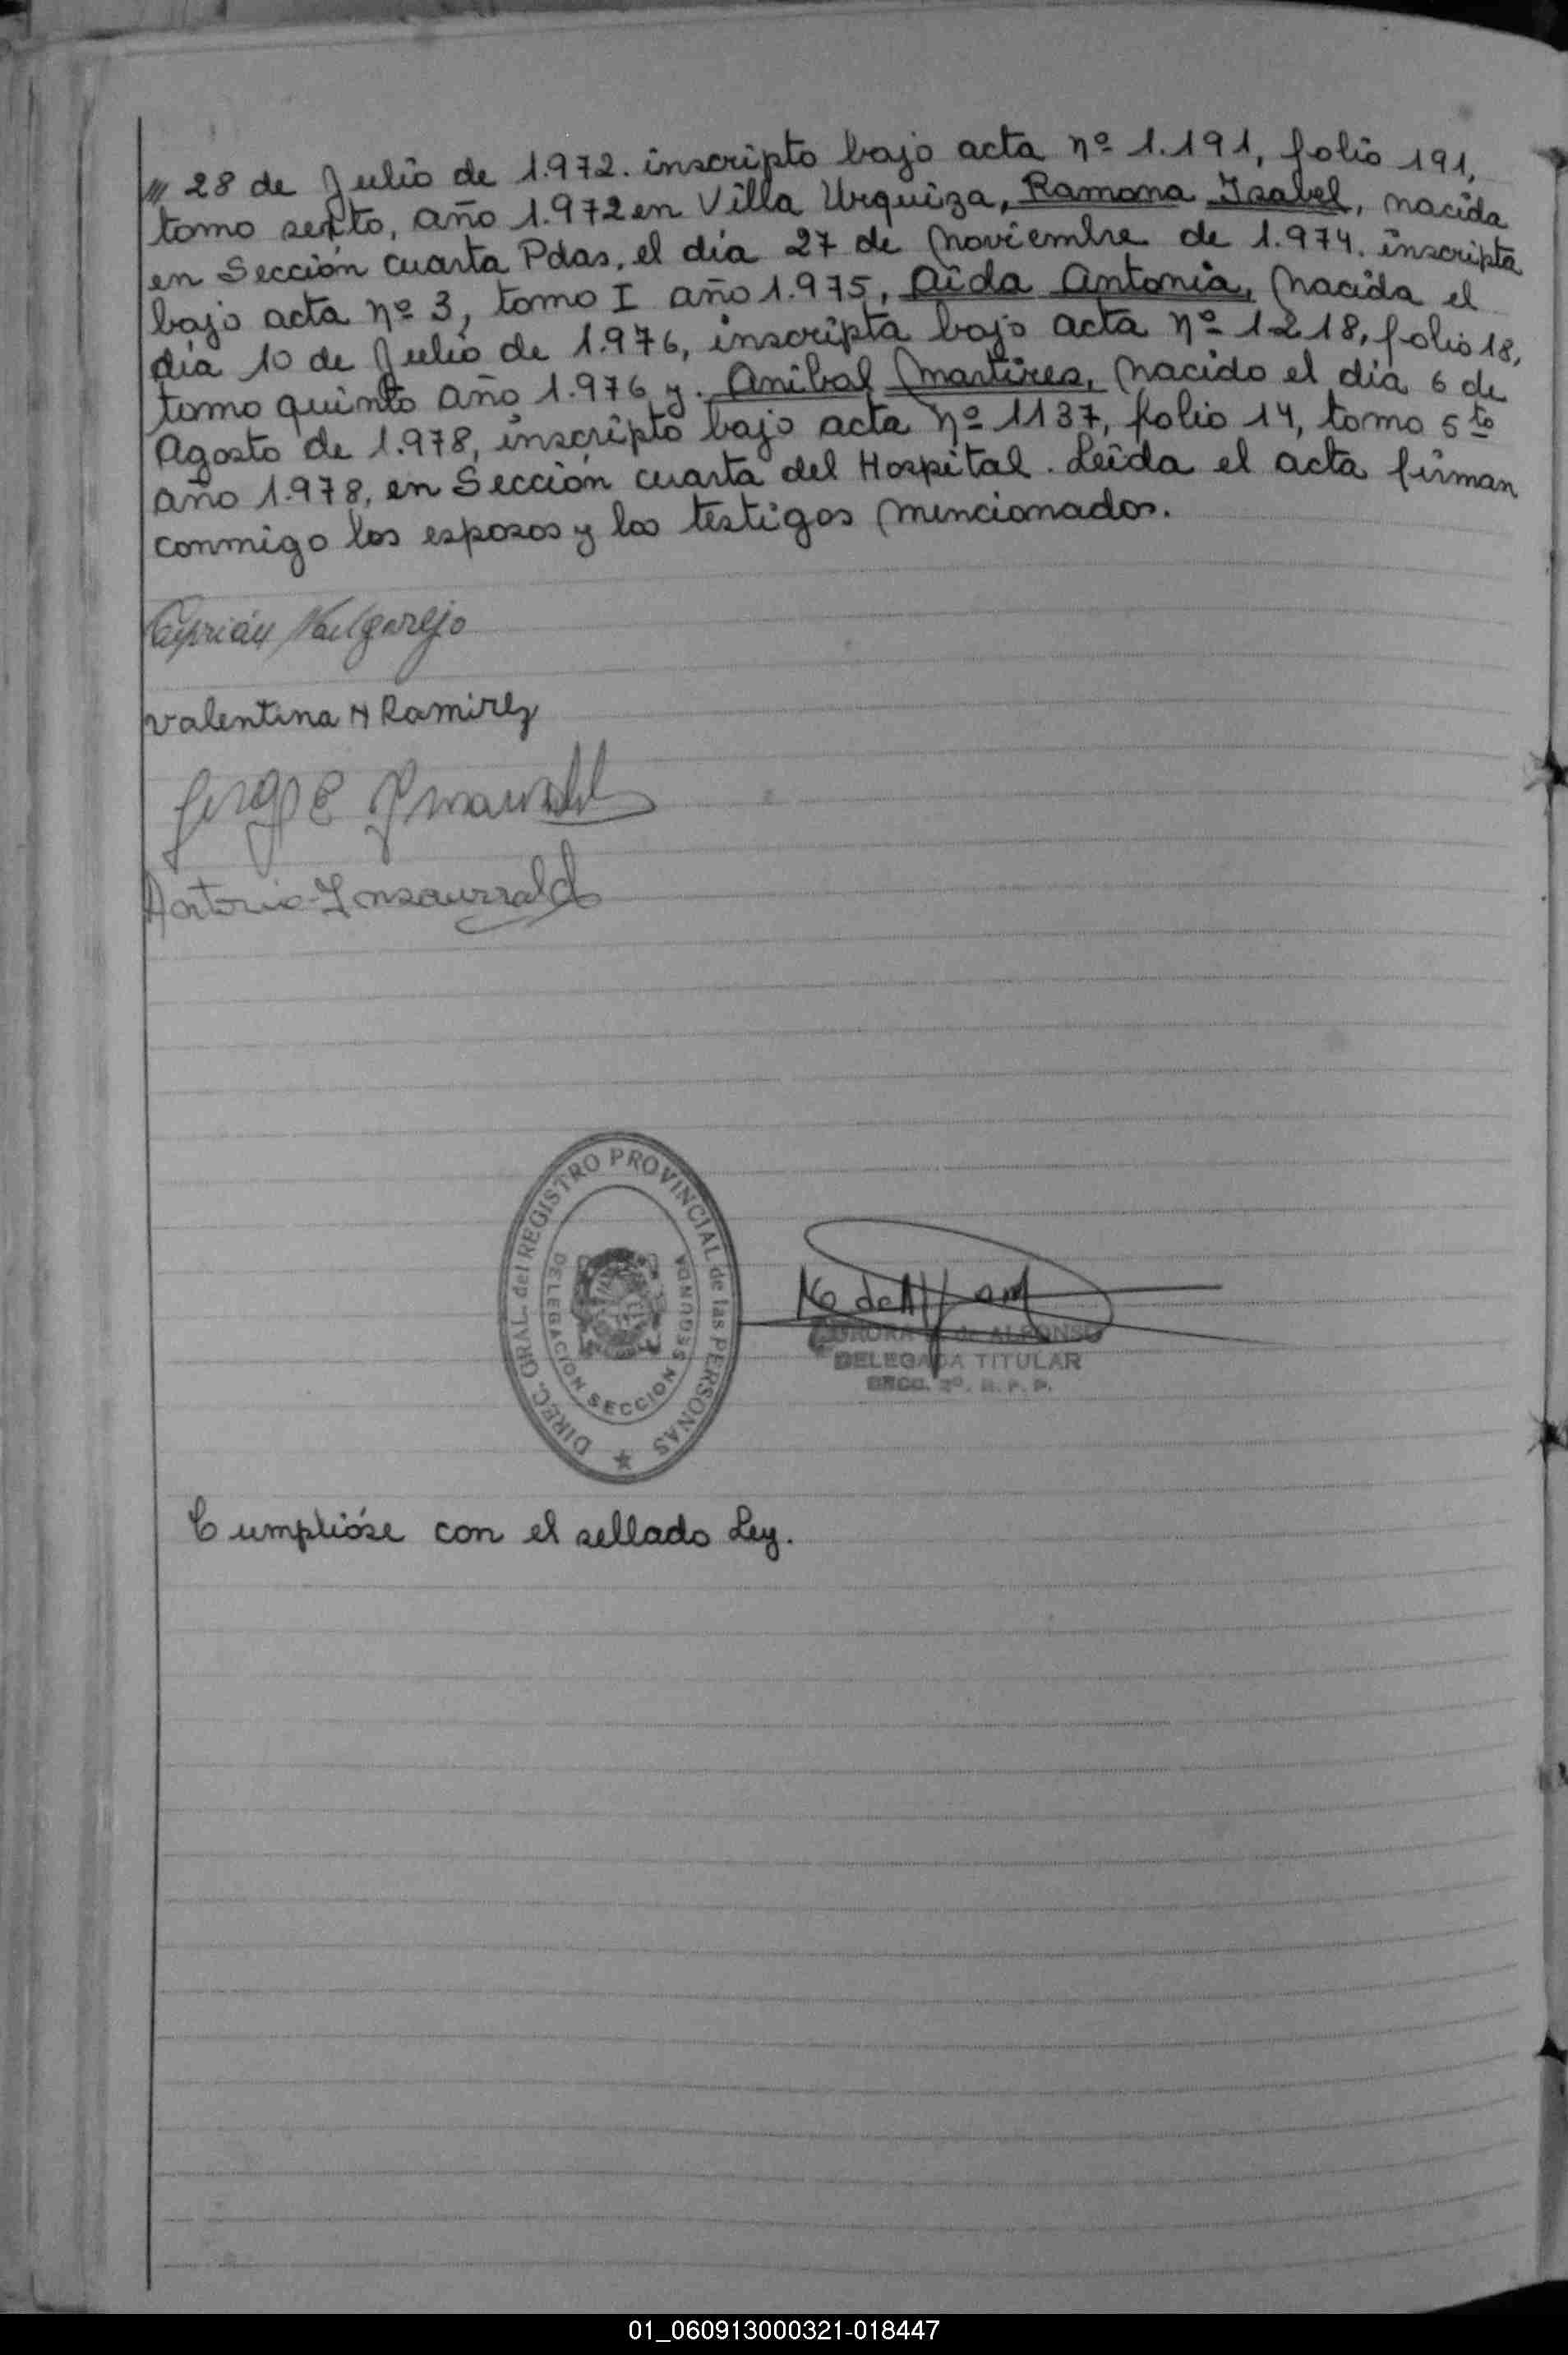 /// 28 de Julio de 1.972. inscripto bajo acta nº 1.191, folio 191,
tomo sexto, año 1.972 en Villa Urquiza, Ramona Isabel, nacida
en Sección cuarta Pdas, el día 27 de noviembre de 1.974. inscripta
bajo acta nº 3, tomo I año 1.975, Aida Antonia, nacida el
día 10 de Julio de 1.976, inscripta bajo acta nº 1218, folio 18,
tomo quinto año 1.976 y. Anibal Martires, nacido el dia 6 de
Agosto de 1.978, inscripto bajo acta nº 1137, folio 14, tomo 5to
año 1.978, en Sección cuarta del Hospital. Leida el acta firman
conmigo los esposos y los testigos mencionados.
Ciprián
Valentina N Ramirez
Jorge
Antonio Insaurralde
DIREC. GRAL. del REGISTRO PROVINCIAL de las PERSONAS
DELEGACION SECCION SEGUNDA
de Alfonso
AURORA de ALFONSO
DELEGADA TITULAR
SECC. 2º. R. P. P.
Cumplióse con el sellado Ley.
01_060913000321-018447